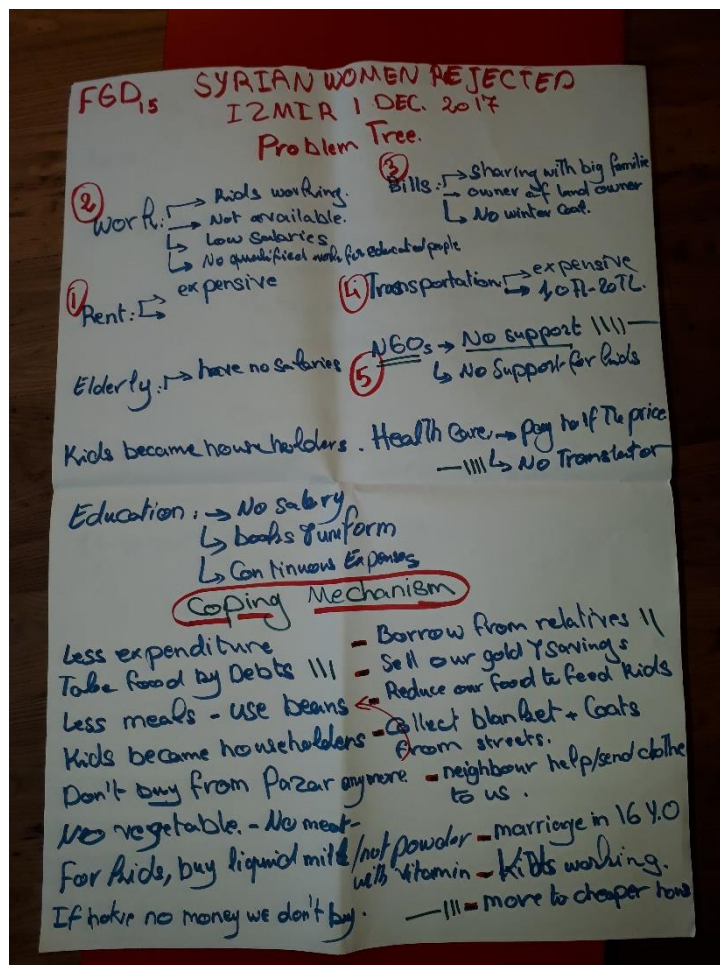 FGD15 SYRIAN WOMEN REJECTED
IZMIR 1 DEC. 2017
Problem Tree.
② Work: → Kids working.
→ Not available.
↳ Low salaries
↳ No qualified work for educated people
③ Bills: → sharing with big familie
→ owner of land owner
↳ No winter coal.
① Rent: → expensive
④ Transportation → expensive
→ 10TL-20TL.
Elderly: → have no salaries
⑤ NGOs → No support \\\\ —
↳ No Support for kids
Kids became householders.
Health Care → pay half The price
— \\\\ ↳ No Translator
Education: → No salary
↳ books & uniform
↳ Continuous Expenses
Coping Mechanism
Less expenditure
Take food by Debts \\\
Less meals - use beans
Kids became householders
Don't buy from Pazar anymore
No vegetable. - No meat -
For kids, buy liquid milk/not powder with vitamin
If have no money we don't buy.
- Borrow from relatives \\
- Sell our gold & savings
- Reduce our food to feed kids
- Collect blanket + Coats
from streets.
- neighbour help/send clothe
to us.
- marriage in 16 Y.O
- Kids working.
— \\\ - move to cheaper hous